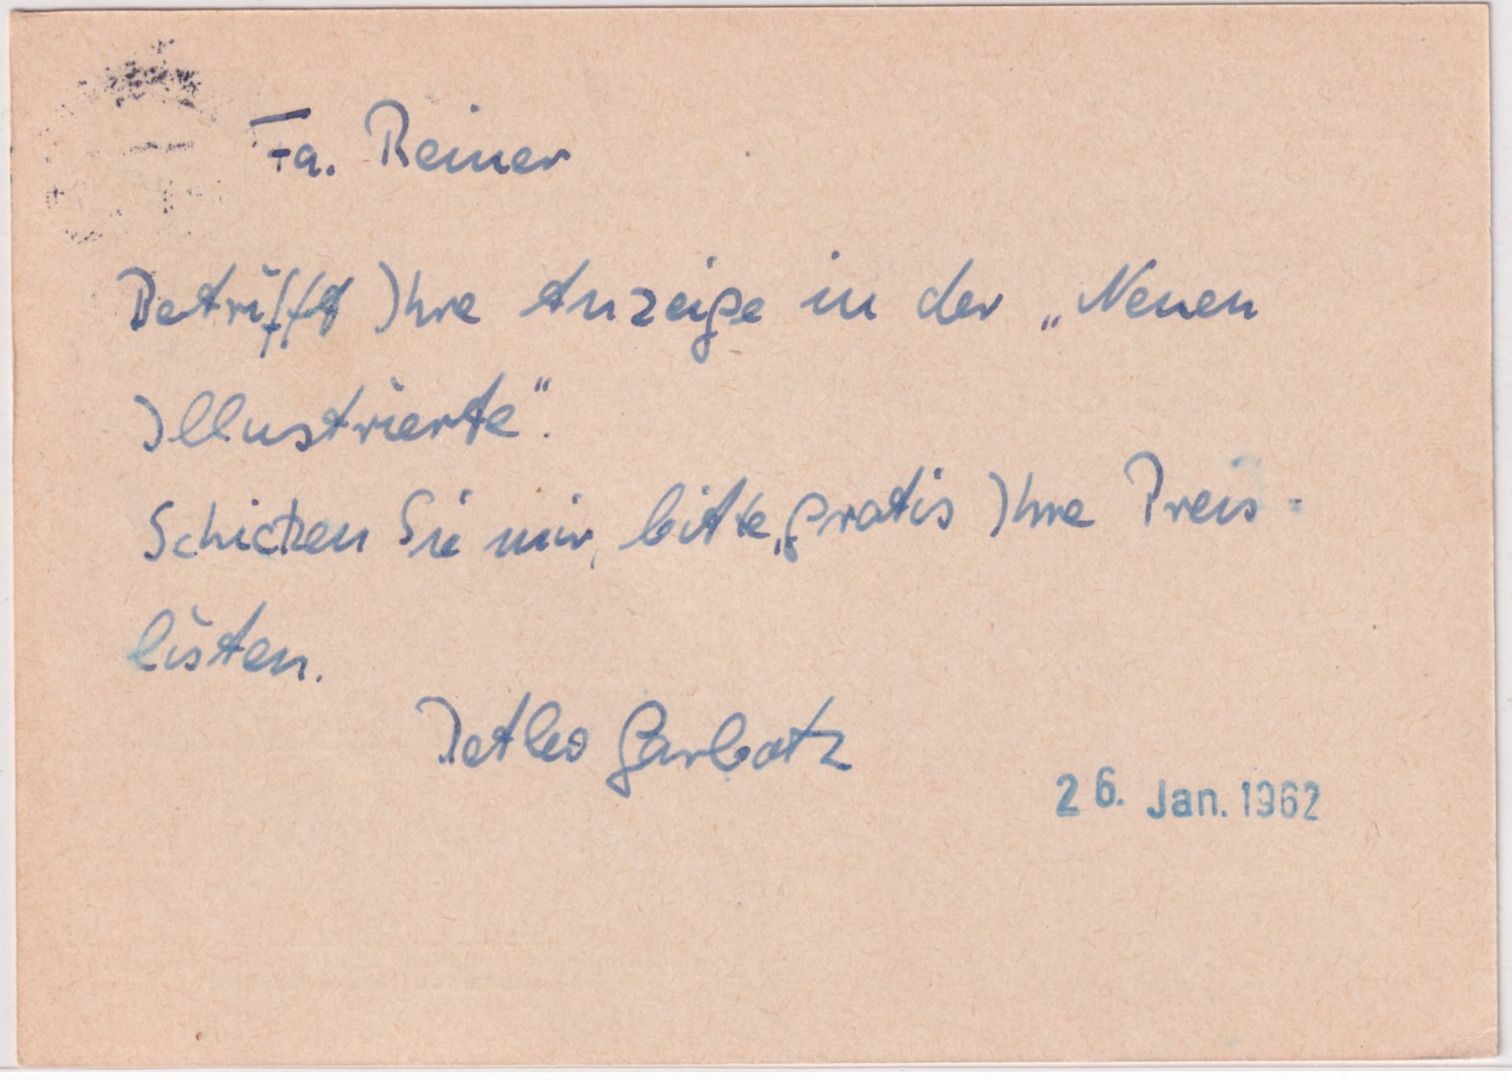 Fa. Reiner
Betrifft Ihre Anzeige in der „Neuen
Illustrierte“.
Schicken Sie mir, bitte, gratis Ihre Preis-
listen.
Garbatz
26. Jan. 1962